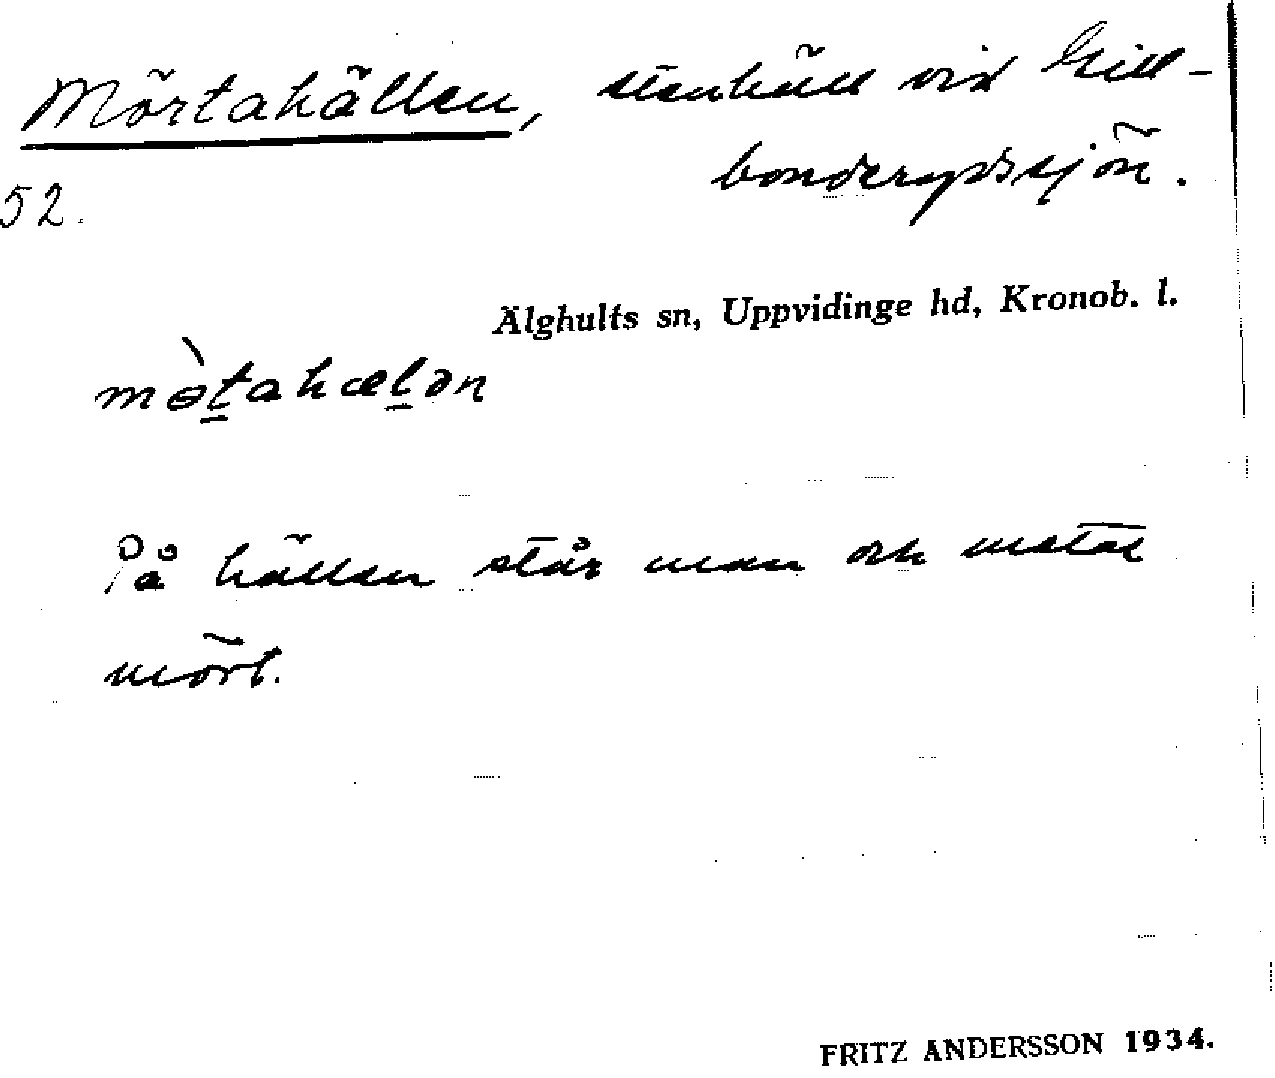 Mörtahällen, stenhäll vid Lill-
bonderydssjön.
52.
Älghults sn, Uppvidinge hd, Kronob. l.
mɵ̀t̠ahæl̠ən
På hällen står man och metar
mört.
FRITZ ANDERSSON 1934.